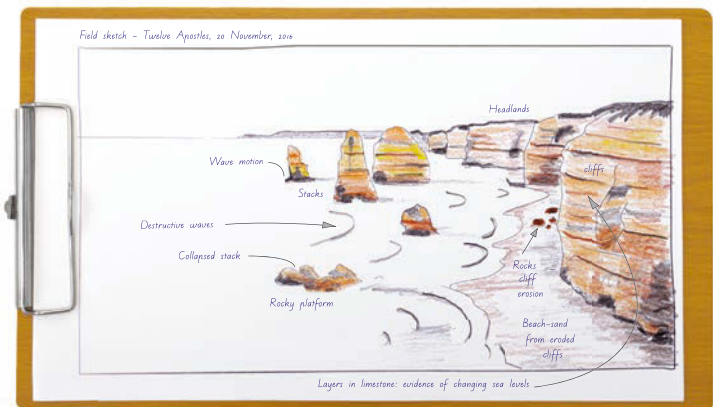 Field sketch – Twelve Apostles, 20 November, 2016
Headlands
Wave motion
cliffs
Stacks
Destructive waves
Collapsed stack
Rocks
cliff
erosion
Rocky platform
Beach-sand
from eroded
cliffs
Layers in limestone: evidence of changing sea levels